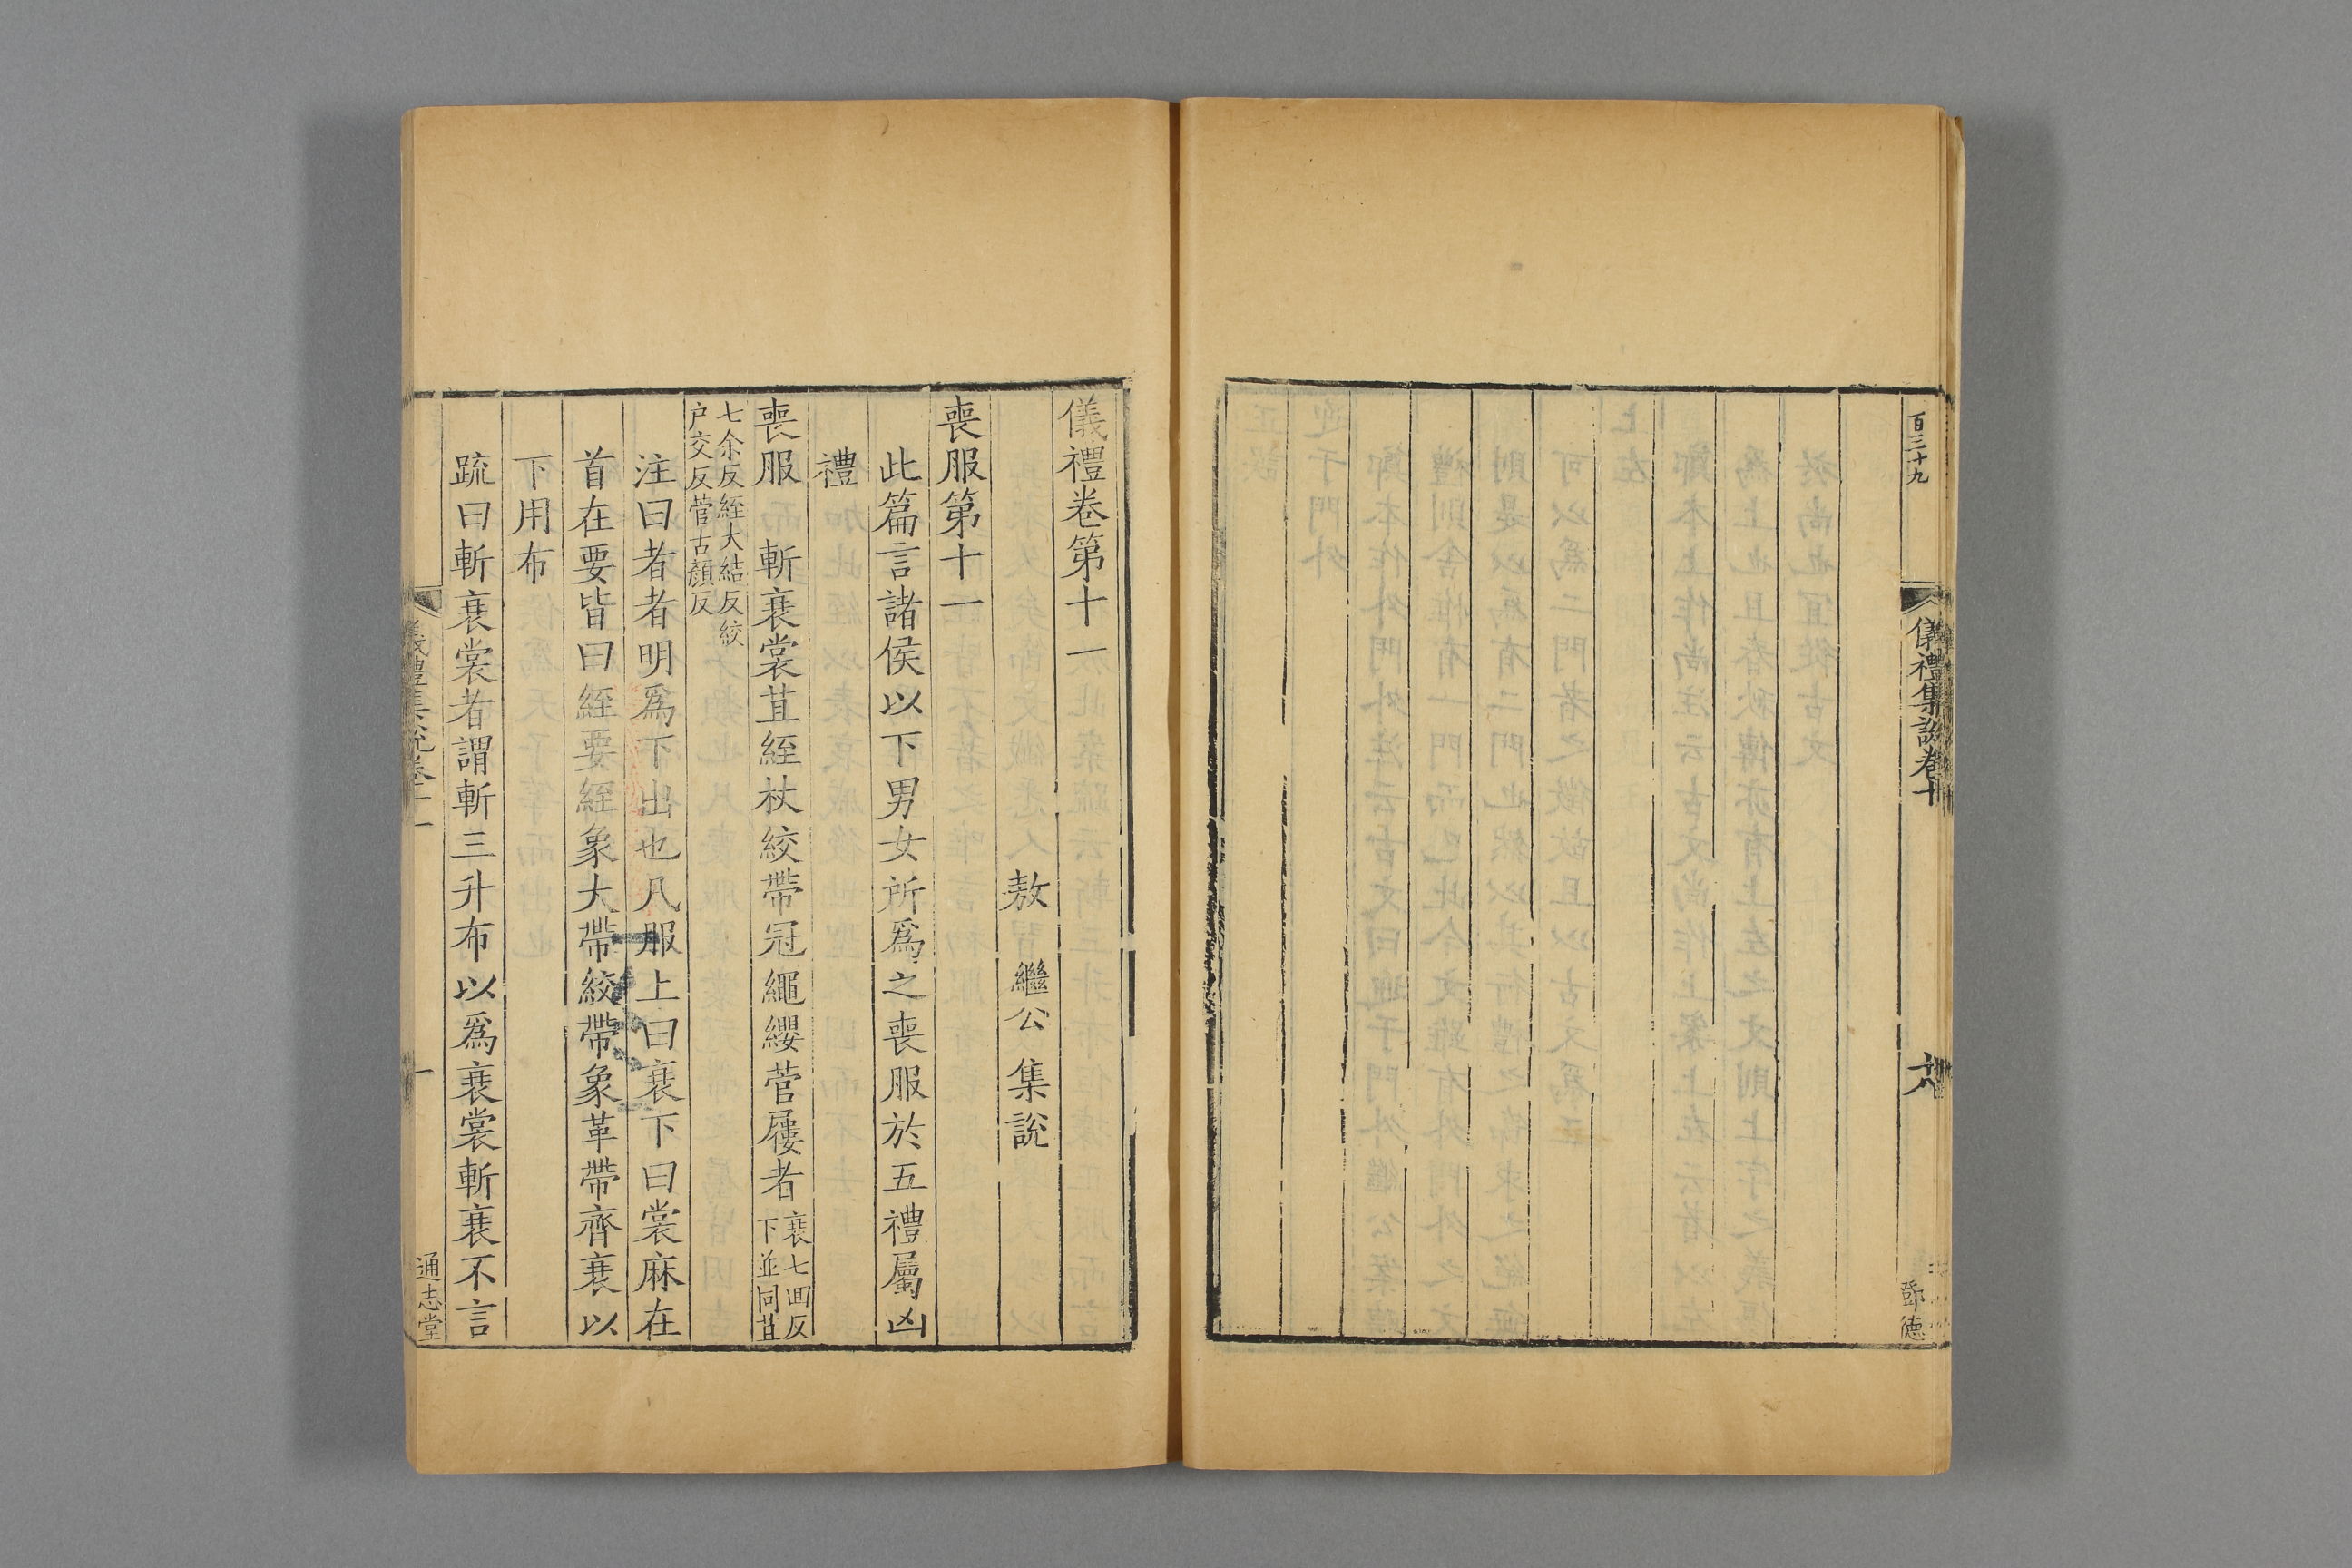 百三十九
儀禮集說卷十
鄧德
儀禮卷第十一
敖繼公集說
喪服第十一
此篇言諸侯以下男女所爲之喪服於五禮屬凶
禮
喪服 斬衰裳苴絰杖絞帶冠繩纓菅屨者衰七回反
下並同苴
七余反絰大結反絞
户交反菅古顏反
注曰者者明爲下出也凡服上曰衰下曰裳麻在
首在要皆曰絰要絰象大帶絞帶象革帶齊衰以
下用布
疏曰斬衰裳者謂斬三升布以爲衰裳斬衰不言
儀禮集說卷十一
一
通志堂